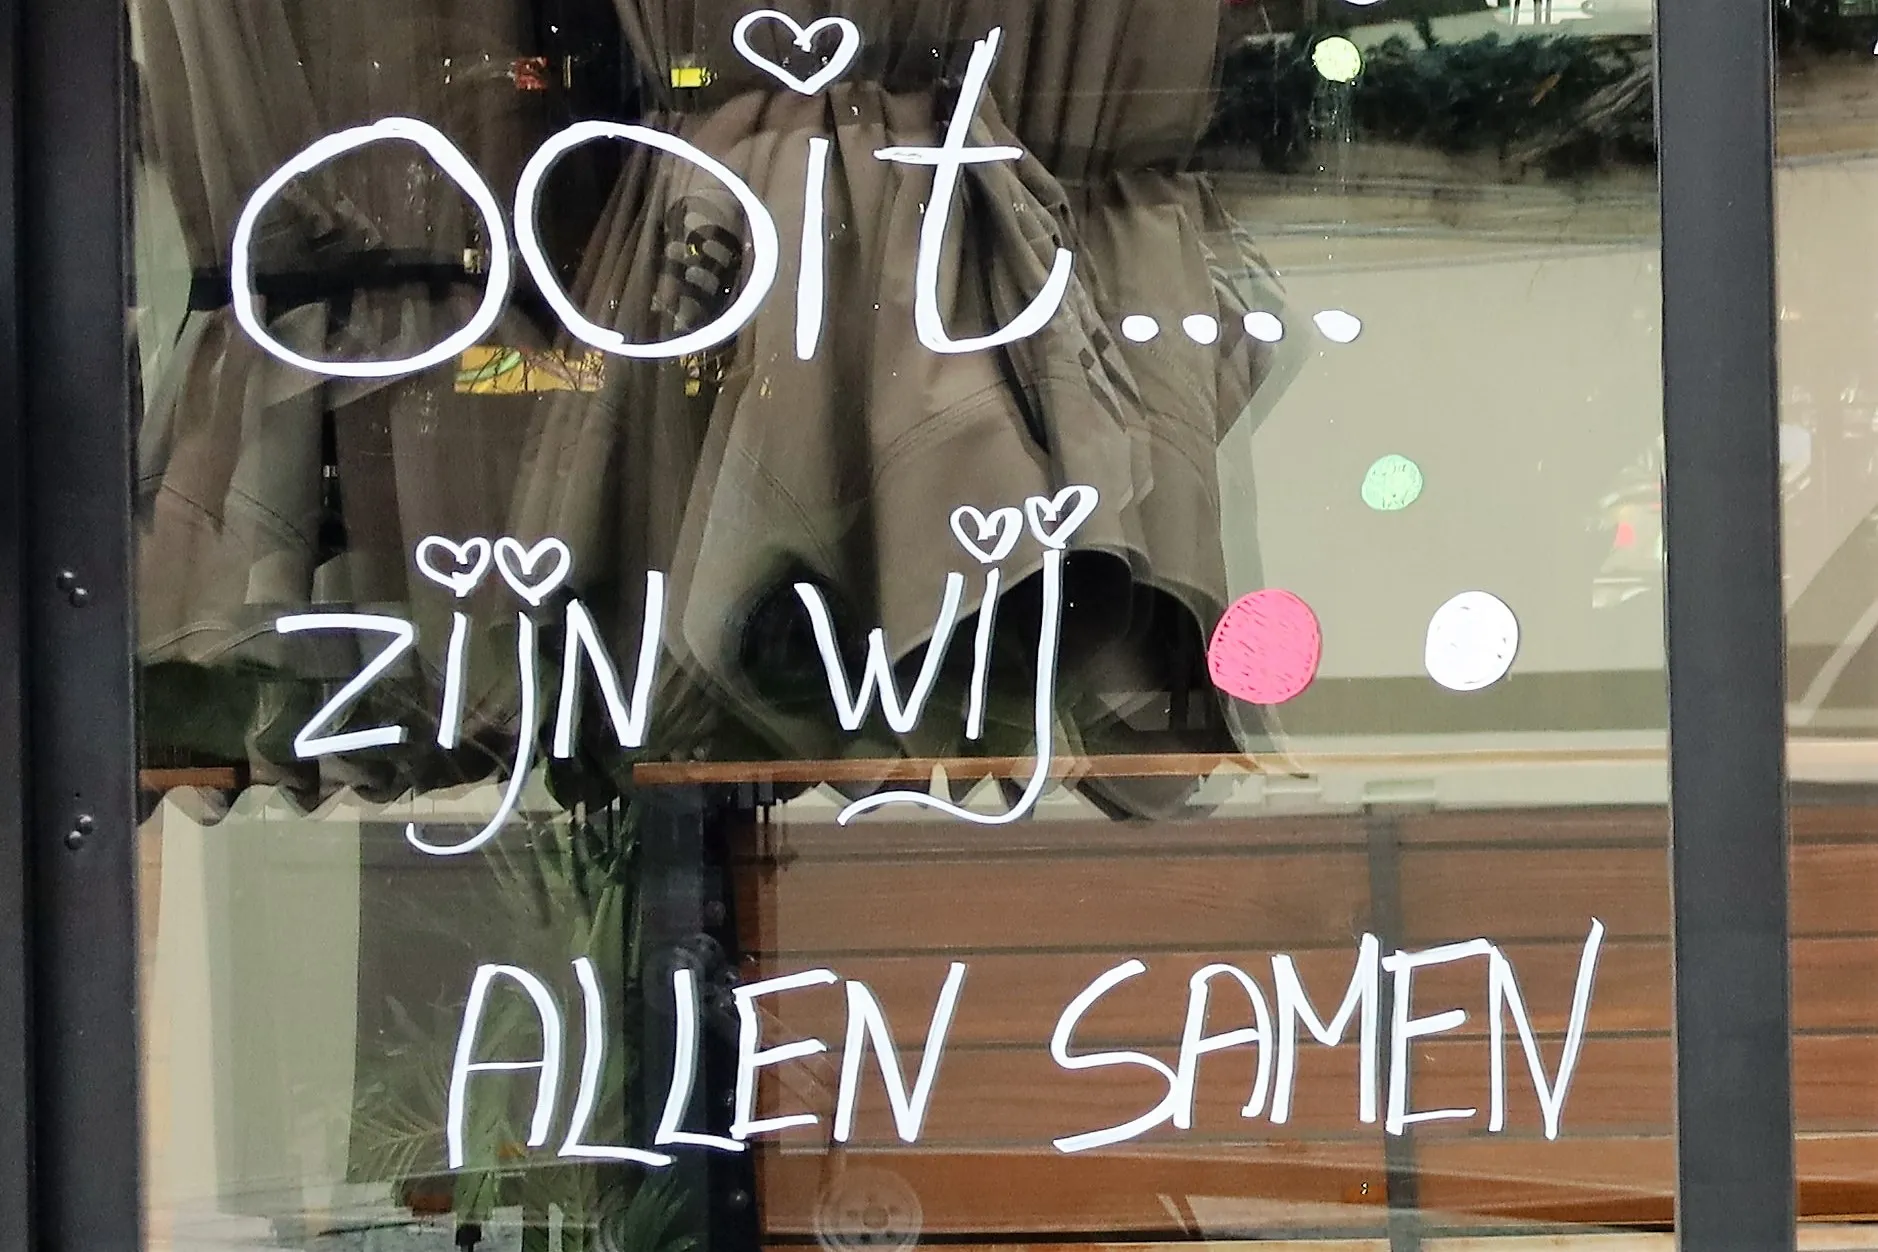 OOit....
ZijN Wij
ALLEN SAMEN